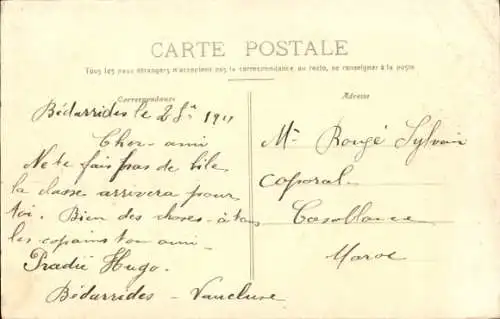 CARTE POSTALE
Tous les pays étrangers n'acceptent pas la correspondance au recto, se renseigner à la poste
Correspondance
Adresse
Bédarrides le 2 1911
Cher ami
Ne te fais pas de bile
la classe arrivera pour
toi. Bien des choses à tous
les copains ton ami
Pradié Hugo.
Bédarrides - Vaucluse
Mr Rougé Sylvain
Caporal
Casablanca
Maroc